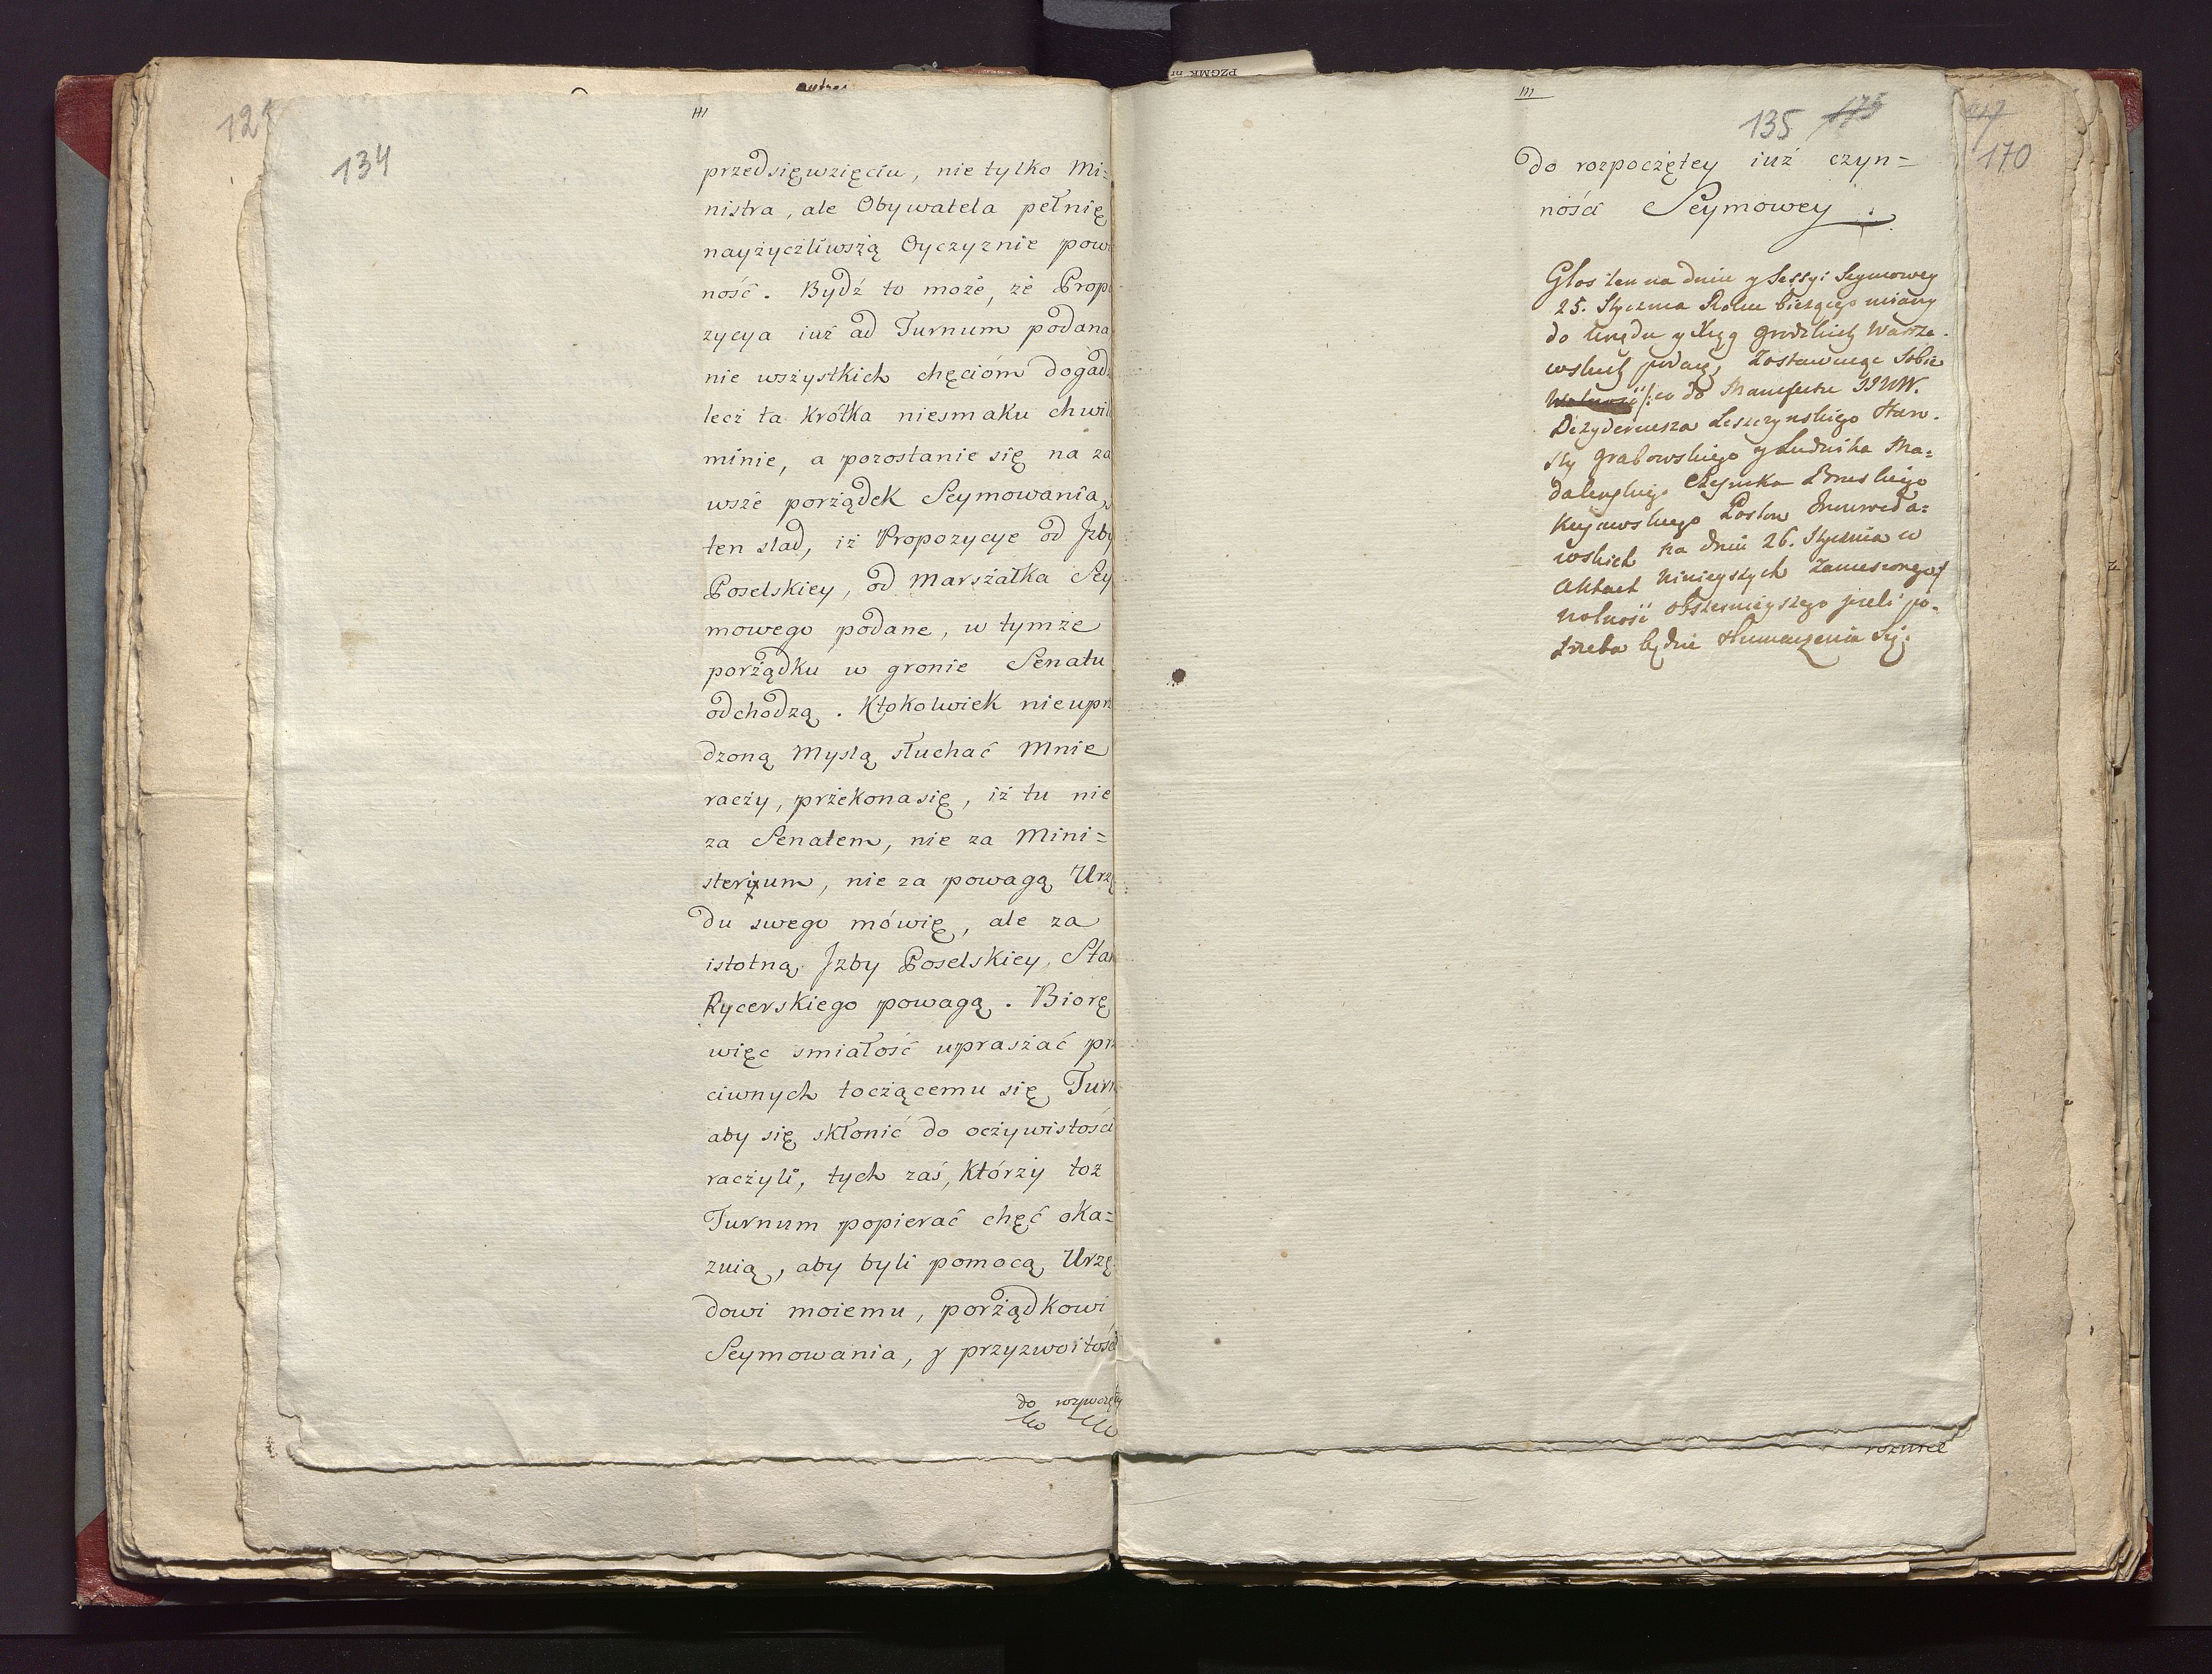 134
przedsięwzięciu, nie tylko Mi=
nistra, ale Obywatela pełnię
nayżyczliwszą Oyczyznie pow
ność. Bydź to może, że Prop
zycya iuż ad Turnum podana
nie wszystkich chęcióm dogad
lecz ta krótka niesmaku chwil
minie, a pozostanie się na za
wsze porządek Seymowania,
ten slad, iż Propozycye od Jzby
Poselskiey, od Marszałka Sey
mowego podane, w tymże
porządku w gronie Senatu
odchodzą. Ktokolwiek nieuprz
dzoną Myslą słuchać Mnie
raczy, przekona się, iż tu nie
za Senatem, nie za Mini=
sterium, nie za powagą Urzę
du swego mówię, ale za
istotną Jzby Poselskiey, Sta
Rycerskiego powagą. Biorę
więc smiałość upraszać prz
ciwnych toczącemu się Turn
aby się skłonić do oczywistości
raczyli, tych zaś, którzy toż
Turnum popierać chęć oka=
zuią, aby byli pomocą Urzę
dowi moiemu, porządkowi
Seymowania, y przyzwoitości
do rozpoczętey
135 175
do rozpoczętey iuż czyn=
ności Seymowey.
Głos ten na dniu y Sessyi Seymowey
25. Stycznia Roku bieżącego miany
do Urzędu y Xiąg Grodzkich Warsza-
wskich podaię, Zostawuiąc Sobie
Wolność /: co do Manifestu JJWW.
Dezyderiusza Leszczynskiego Staro.
sty Grabowskiego y Ludwika Ma=
dalenskiego Czesnika Brzeskiego
Kujawskiego Posłow Inowrocła=
wskich na dniu 26. Stycznia w
Aktach ninieyszych zaniesionego :/
wolność obszernieyszego jeżeli po-
trzeba będzie tłumaczenia się.
170
rozumie